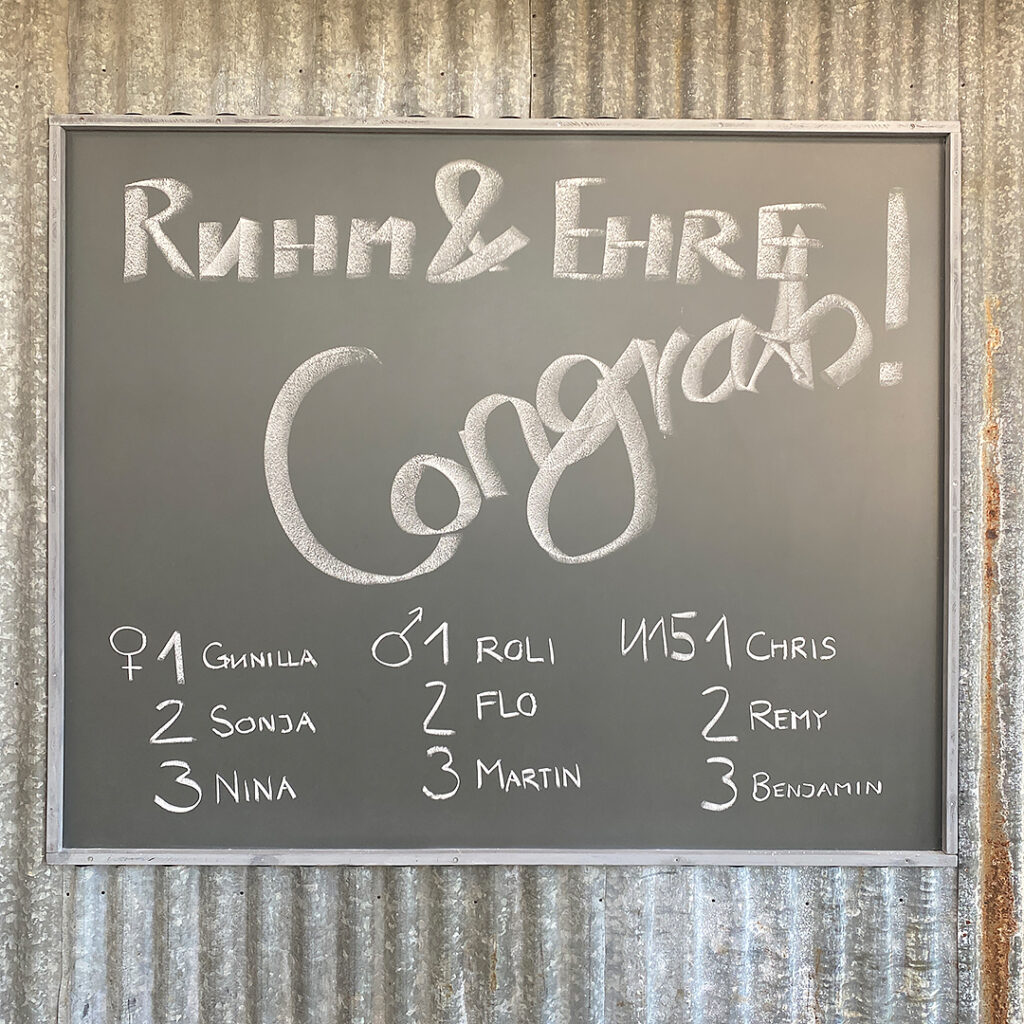 RUHM & EHRE!
Congrats
♀ 1 GUNILLA
2 SONJA
3 NINA
♂ 1 ROLI
2 FLO
3 MARTIN
U15 1 CHRIS
2 REMY
3 BENJAMIN